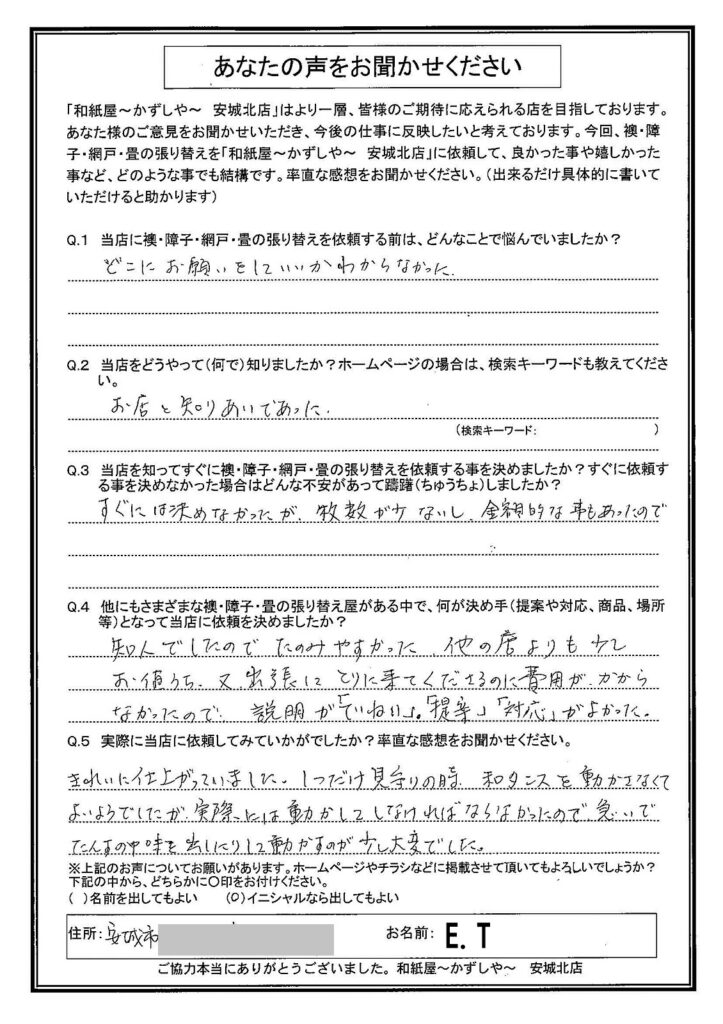 あなたの声をお聞かせください
「和紙屋～かずしや～　安城北店」はより一層、皆様のご期待に応えられる店を目指しております。
あなた様のご意見をお聞かせいただき、今後の仕事に反映したいと考えております。今回、襖・障
子・網戸・畳の張り替えを「和紙屋～かずしや～　安城北店」に依頼して、良かった事や嬉しかった
事など、どのような事でも結構です。率直な感想をお聞かせください。（出来るだけ具体的に書いて
いただけると助かります）
Q.1　当店に襖・障子・網戸・畳の張り替えを依頼する前は、どんなことで悩んでいましたか？
どこにお願いをしていいかわからなかった.
Q.2　当店をどうやって（何で）知りましたか？ホームページの場合は、検索キーワードも教えてくださ
い。
お店と知りあいであった.
（検索キーワード：　　　　　　　　）
Q.3　当店を知ってすぐに襖・障子・網戸・畳の張り替えを依頼する事を決めましたか？すぐに依頼す
る事を決めなかった場合はどんな不安があって躊躇（ちゅうちょ）しましたか？
すぐには決めなかったが、枚数が少ないし、金額的な事もあったので
Q.4　他にもさまざまな襖・障子・畳の張り替え屋がある中で、何が決め手（提案や対応、商品、場所
等）となって当店に依頼を決めましたか？
知人でしたので たのみやすかった 他の店よりも少し
お値うち、又 出張に とりに来てくださるのに費用が、かから
なかったので、 説明が「ていねい」。「提案」「対応」がよかった。
Q.5　実際に当店に依頼してみていかがでしたか？率直な感想をお聞かせください。
きれいに仕上がっていました。1つだけ 見守りの時、和タンスを動かさなくて
よいようでしたが、実際には動かして しなければならなかったので、急いで
たんすの中味を出したりして動かすのが 少し大変でした。
※上記のお声についてお願いがあります。ホームページやチラシなどに掲載させて頂いてもよろしいでしょうか？
下記の中から、どちらかに〇印をお付けください。
（　）名前を出してもよい　　（〇）イニシャルなら出してもよい
住所：安城市　お名前：E. T
ご協力本当にありがとうございました。和紙屋～かずしや～　安城北店